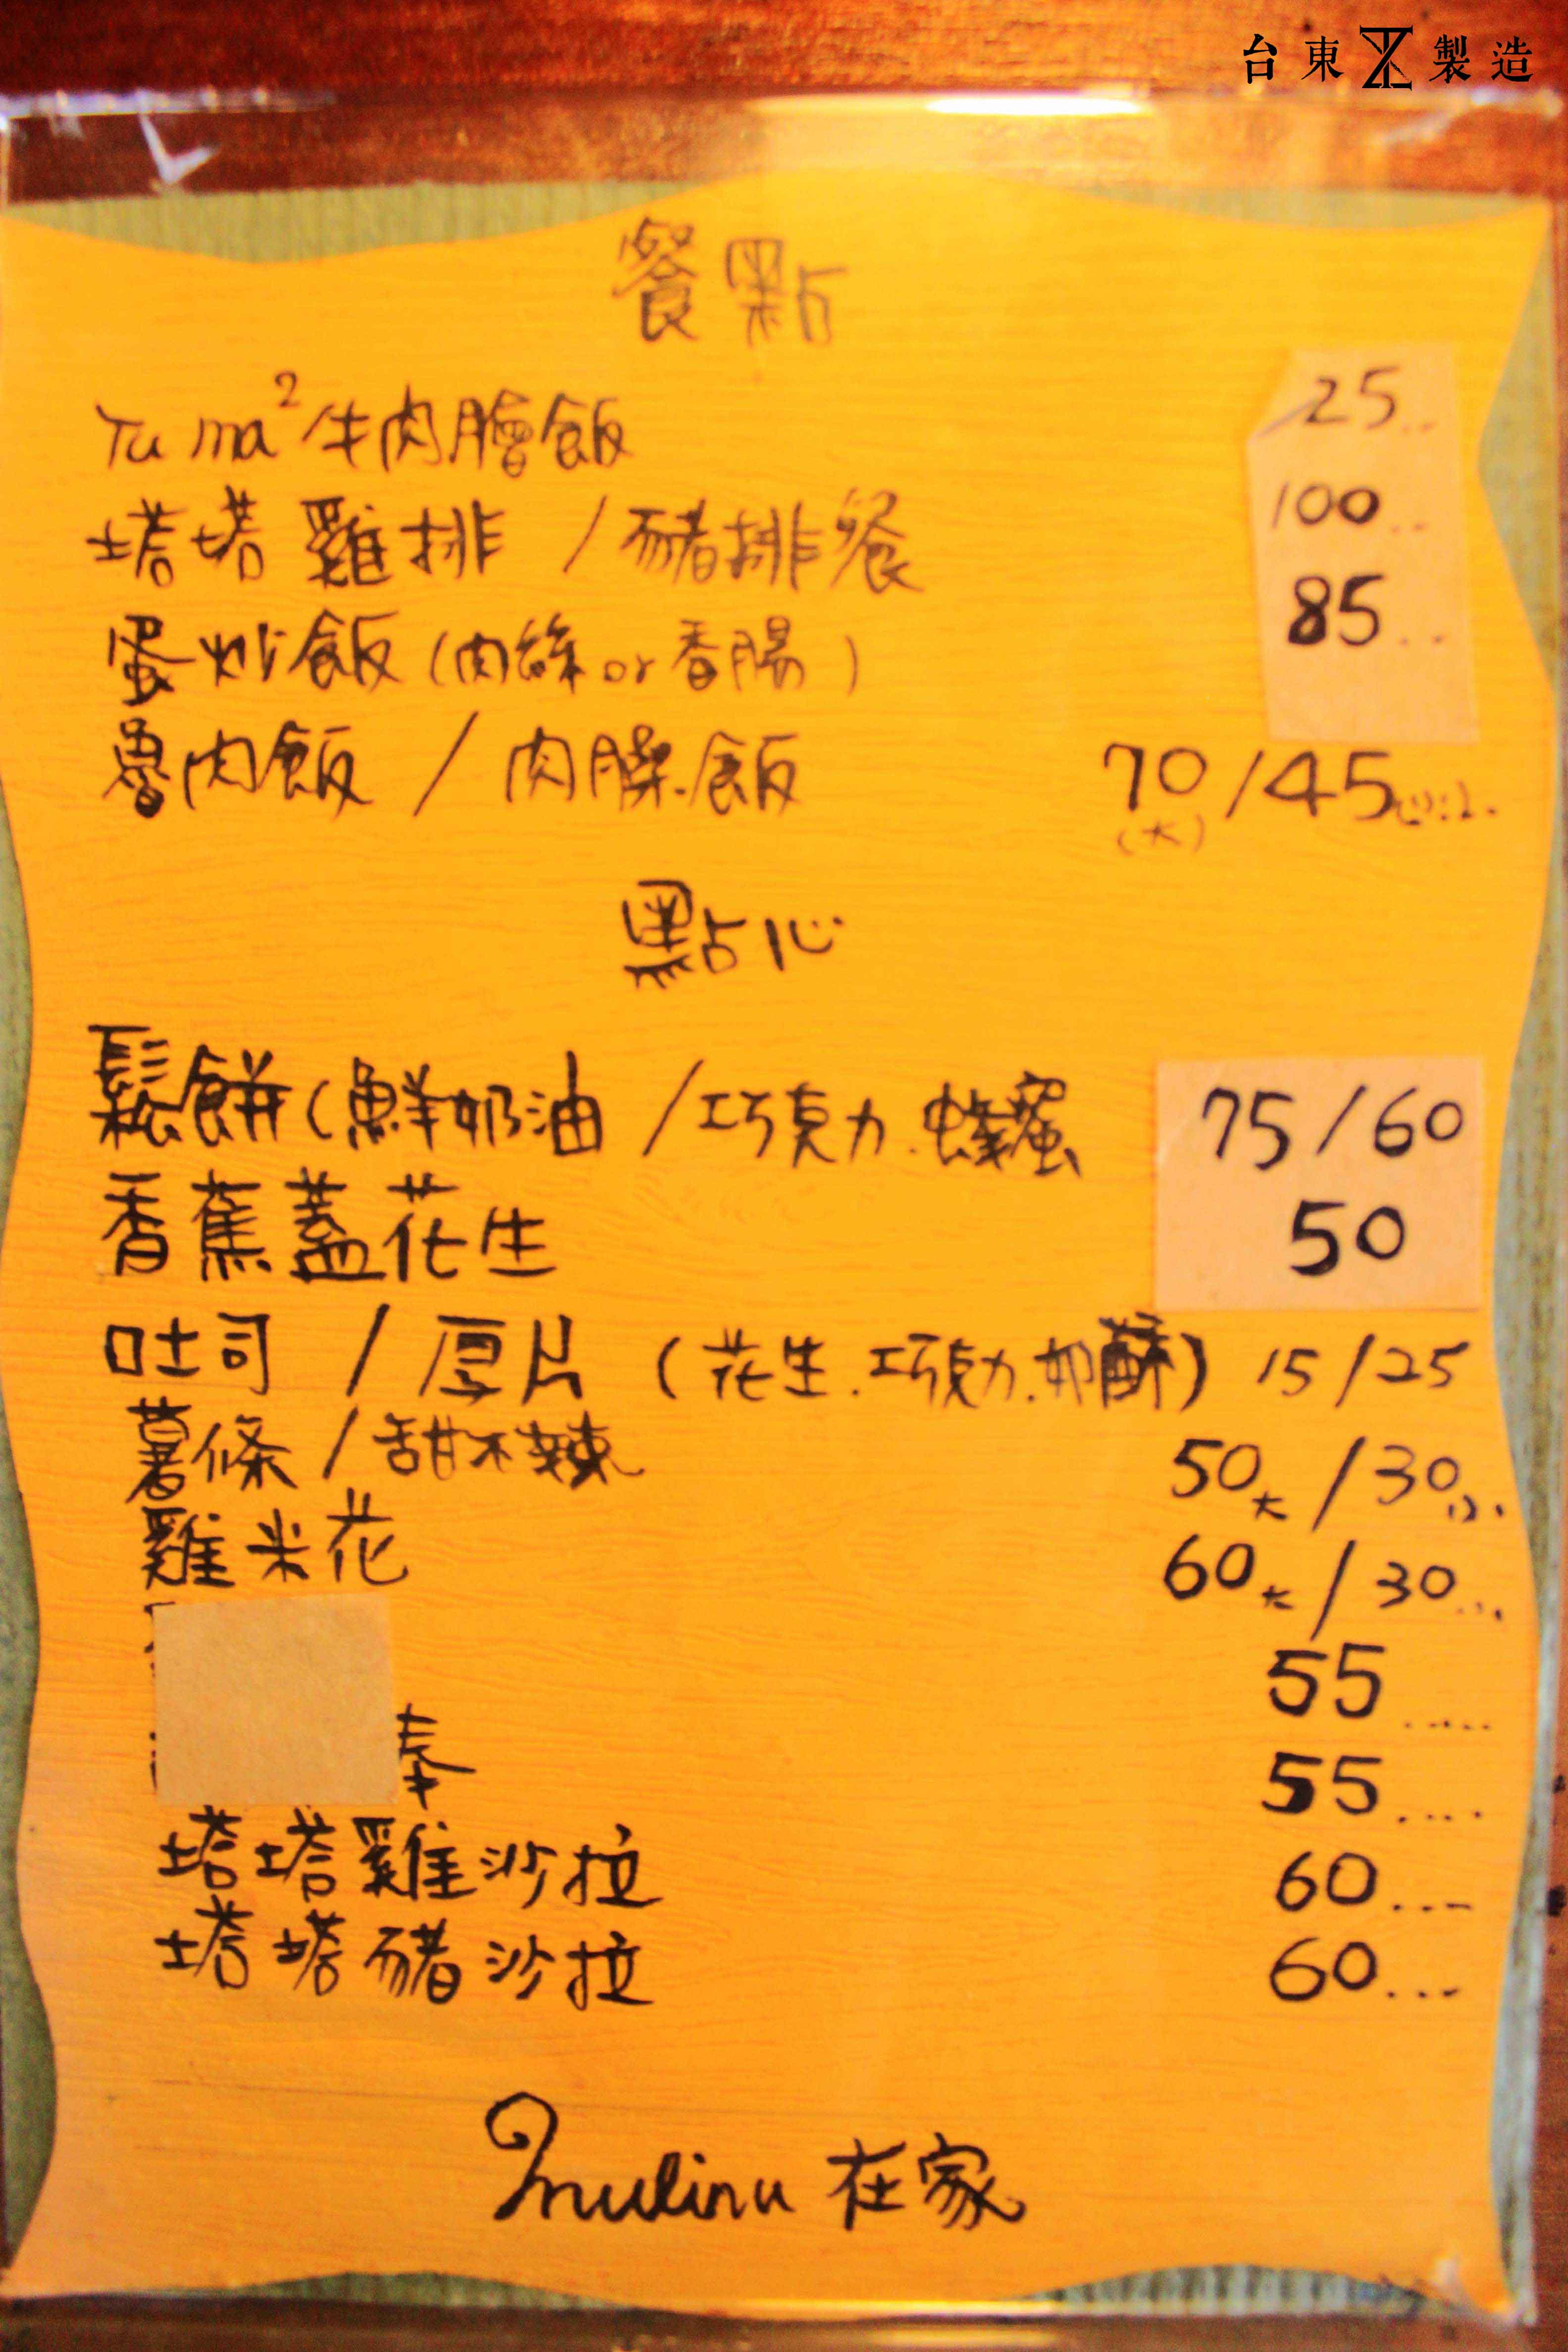 台東製造
餐點
Tu ma² 牛肉燴飯 25
塔塔雞排 / 豬排餐 100
蛋炒飯 (肉絲 or 香腸) 85
魯肉飯 / 肉臊飯 70 (大) / 45
點心
鬆餅 (鮮奶油 / 巧克力.蜂蜜 75 / 60
香蕉蓋花生 50
吐司 / 厚片 (花生.巧克力.奶酥) 15 / 25
薯條 / 甜不辣 50大 / 30小
雞米花 60大 / 30
55
棒 55
塔塔雞沙拉 60
塔塔豬沙拉 60
在家